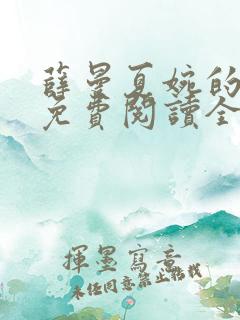 薛曼夏婉的
免費閱讀全
揮墨寫意
未經同意禁止搭載